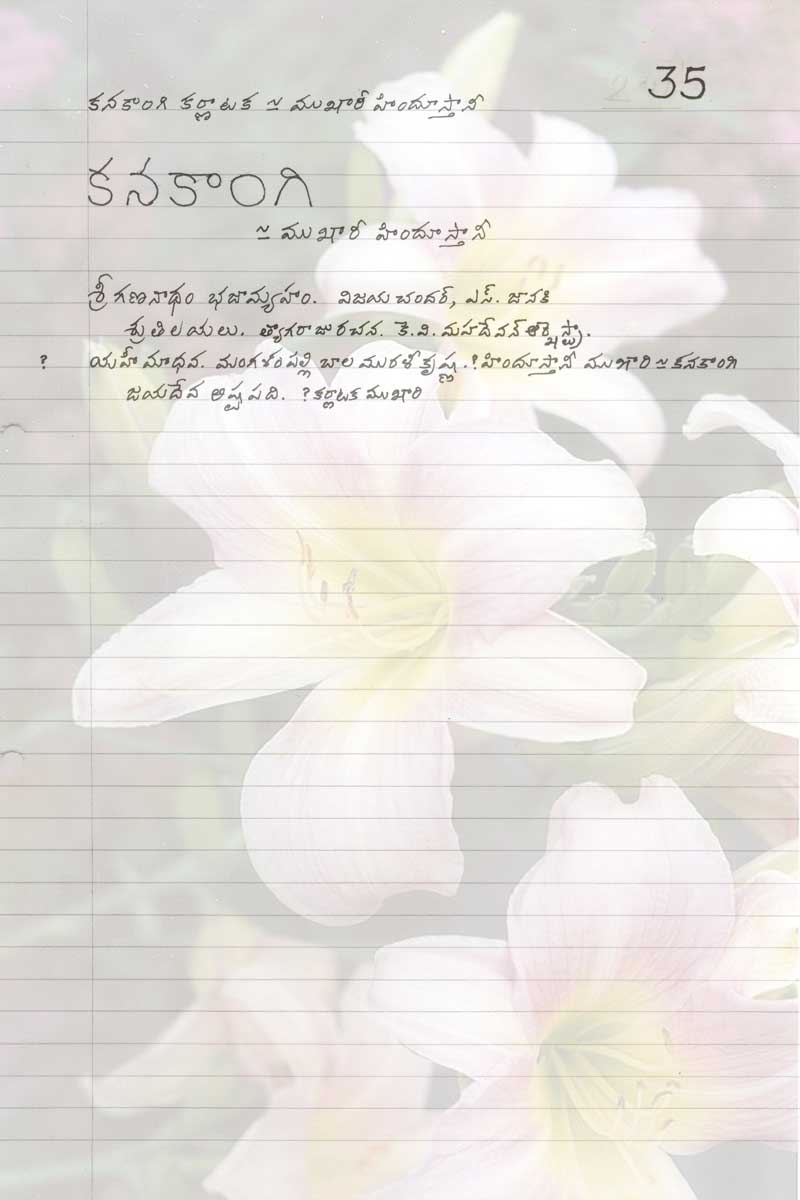 35
కనకాంగి కర్ణాటక ≃ ముఖారీ హిందూస్తానీ
కనకాంగి
≃ ముఖారీ హిందూస్తానీ
శ్రీ గణనాథం భజామ్యహం. విజయచందర్, ఎస్. జానకి
శ్రుతిలయలు. త్యాగరాజు రచన. కె.వి. మహదేవన్ ఆర్కెస్ట్రా.
? యాహీ మాధవ. మంగళంపల్లి బాల మురళీకృష్ణ. ? హిందూస్తానీ ముఖారి ≃ కనకాంగి
జయదేవ అష్టపది. ? కర్ణాటక ముఖారి